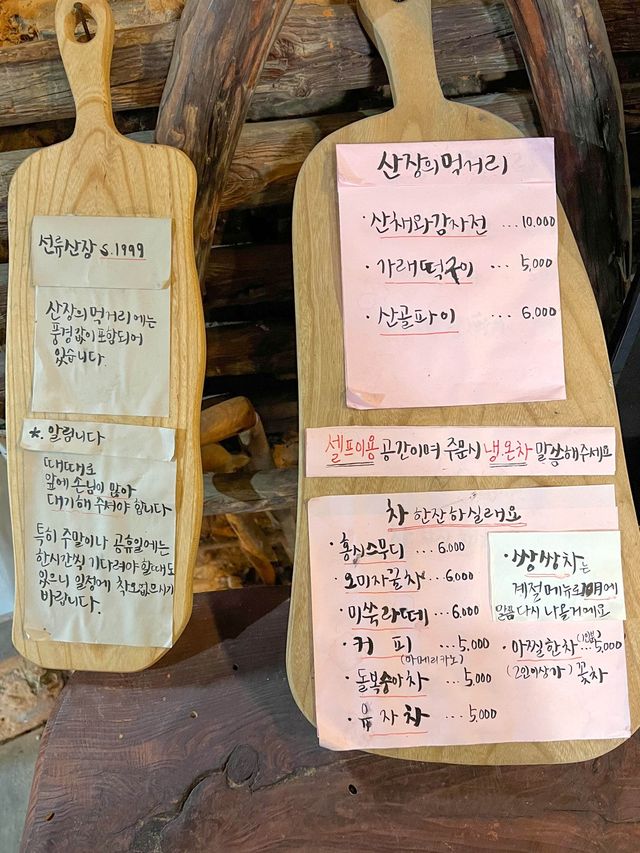 선류산장 S.1999
산장의 먹거리에는
풍경값이 포함되어
있습니다.
*. 알림니다
때때로
앞에 손님이 많아
대기해 주셔야 합니다
특히 주말이나 공휴일에는
한시간씩 기다려야 할때도
있으니 일정에 착오없으시기
바랍니다.
산장의 먹거리
· 산채와감자전 ... 10,000
· 가래떡구이 ... 5,000
· 산골파이 ... 6,000
셀프이용 공간이며 주문시 냉.온차 말씀해주세요
차 한잔하실래요
· 홍시스무디 ... 6.000
· 오미자꿀차 ... 6.000
· 미쑥라떼 ... 6,000
· 커 피 ... 5,000
(아메리카노)
· 돌복숭아차 ... 5,000
· 유자차 ... 5,000
· 쌍쌍차는
계절메뉴로 10月에
다시 나올거예요
· 아찔한차 ... 5,000
(2인이상가) 꽃차